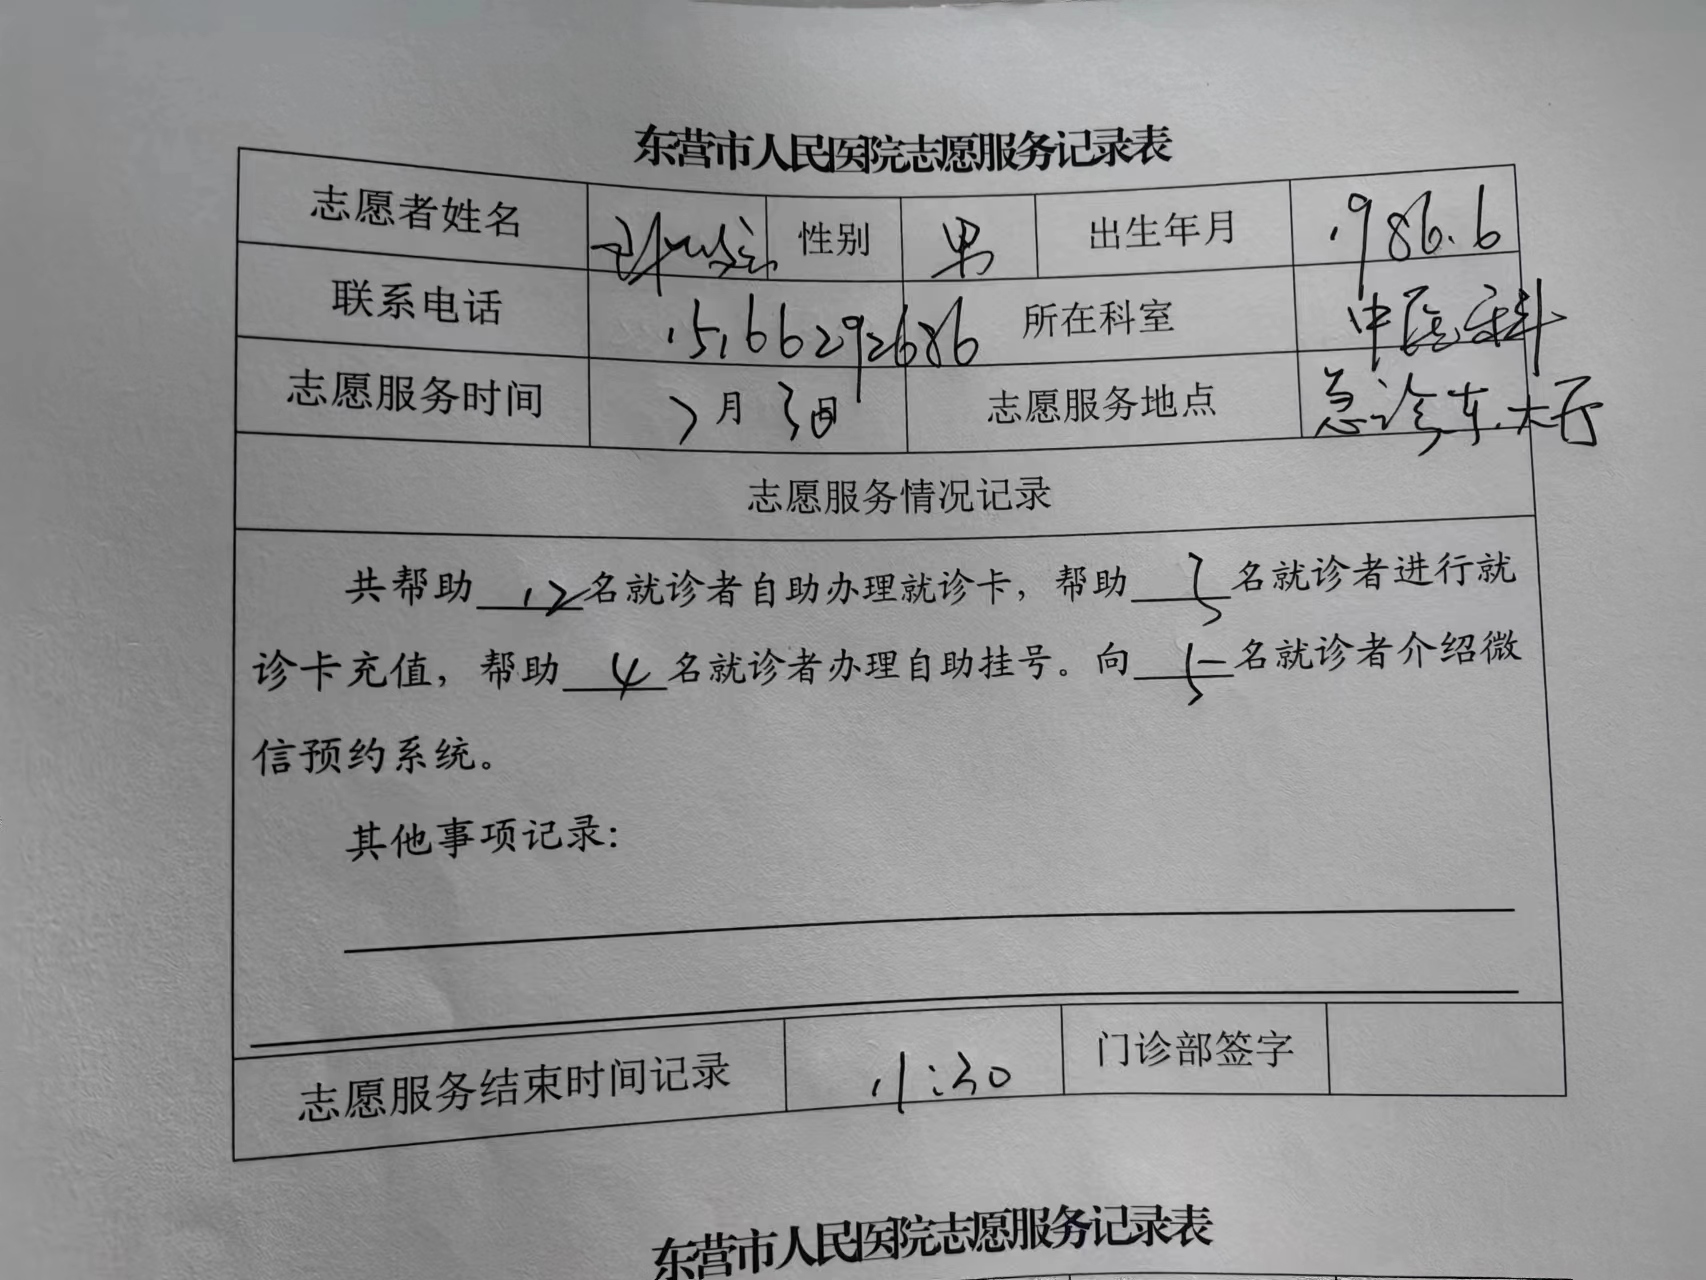 东营市人民医院志愿服务记录表
志愿者姓名 性别 男 出生年月 1986.6
联系电话 15166292686 所在科室 中医科
志愿服务时间 7月3日 志愿服务地点 急诊东大厅
志愿服务情况记录
共帮助12名就诊者自助办理就诊卡，帮助3名就诊者进行就
诊卡充值，帮助4名就诊者办理自助挂号。向5名就诊者介绍微
信预约系统。
其他事项记录：
志愿服务结束时间记录 11:30 门诊部签字
东营市人民医院志愿服务记录表